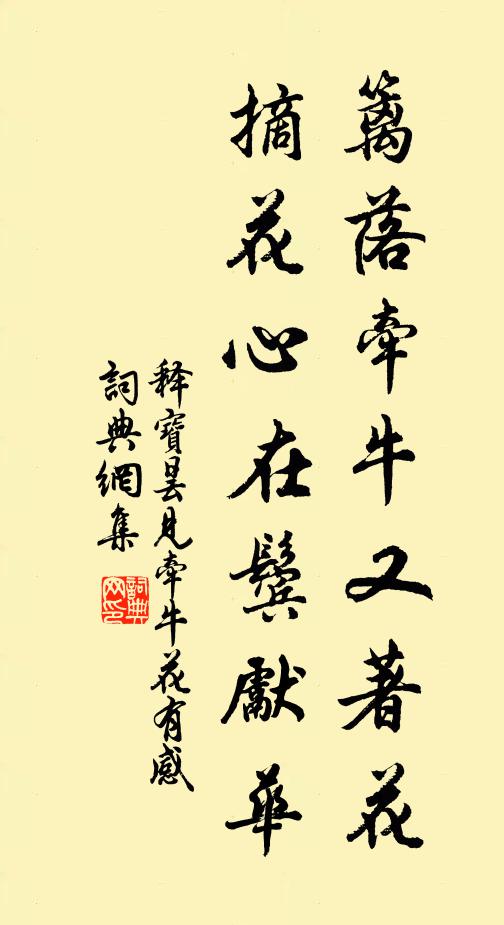 篱落牽牛又著花
摘花心在鬢獻華
释寶曇見牽牛花有感
詞典網集
詞典网印